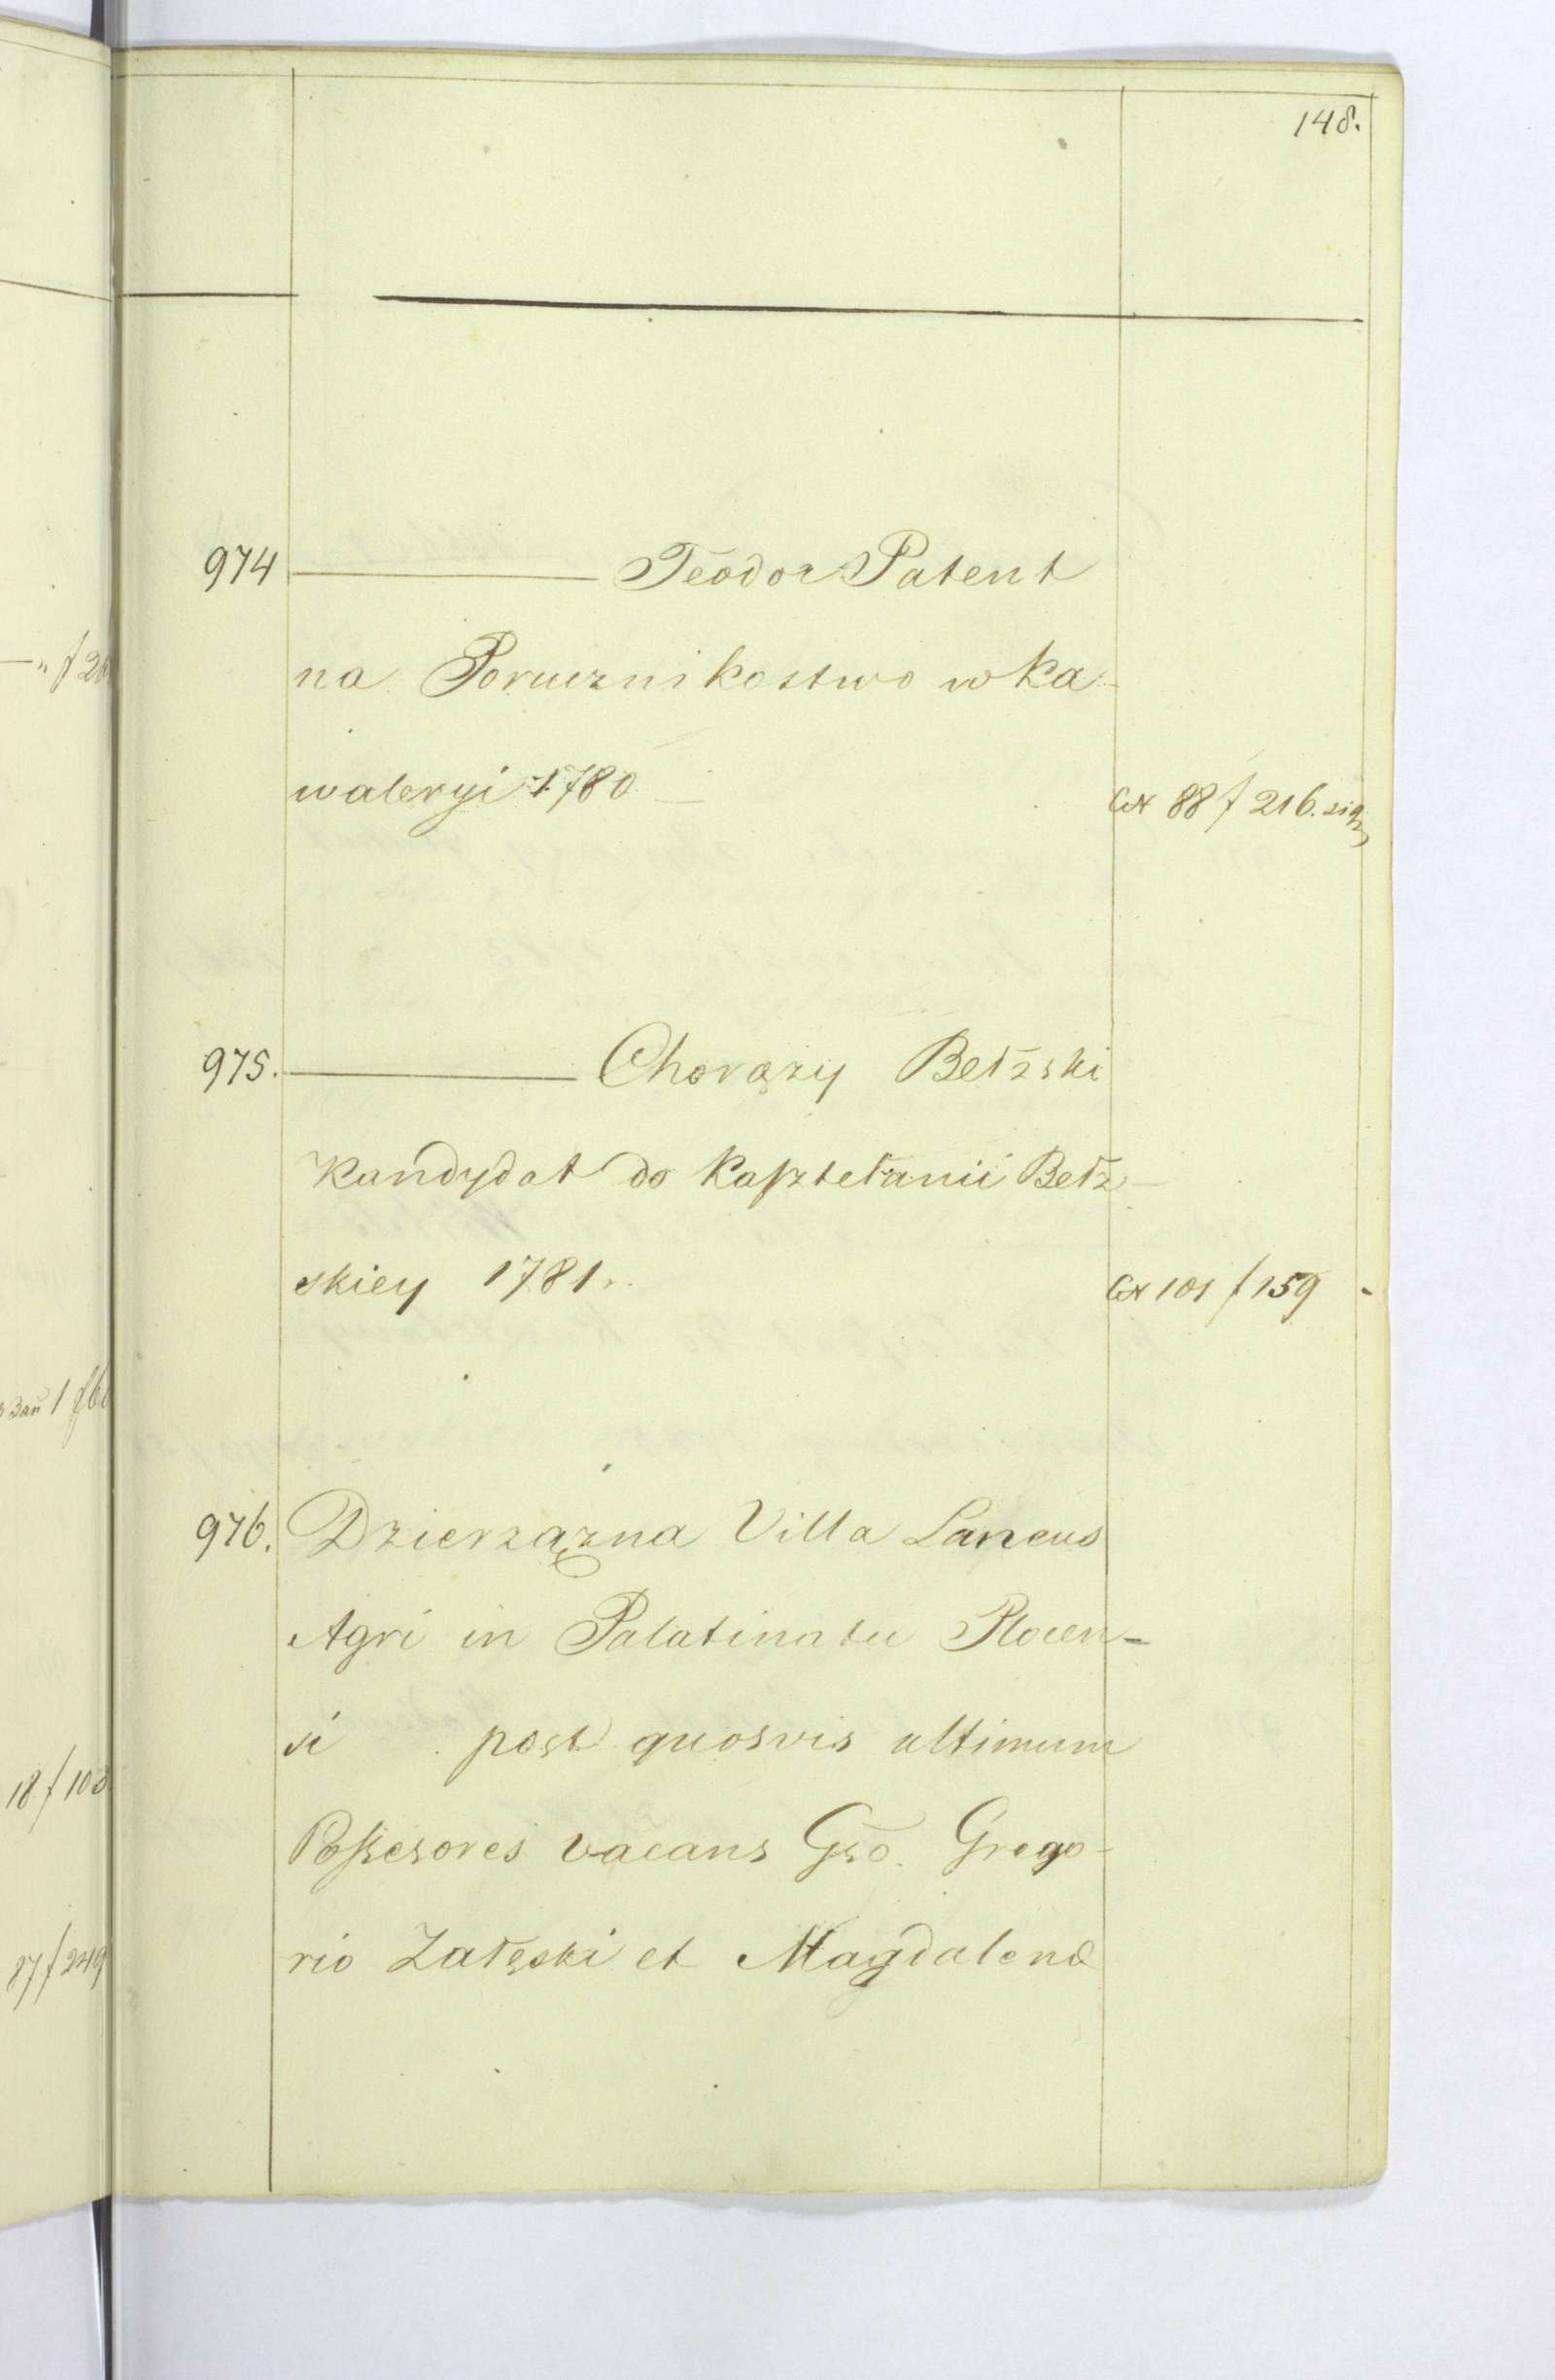 148.
974 ——— Teodor Patent
na Porucznikostwo w ka-
waleryi 1780 — Ex 88 f 216.
975. ——— Chorąży Bełzski
Kandydat do Kasztełanii Bełz-
skiey 1781 r. Ex 101 f 159
976. Dzierzązna Villa Laneus
Agri in Palatinatu Plocen-
si post quosvis ultimum
Possesores vacans Gso. Grego-
rio Załęski et Magdalenæ